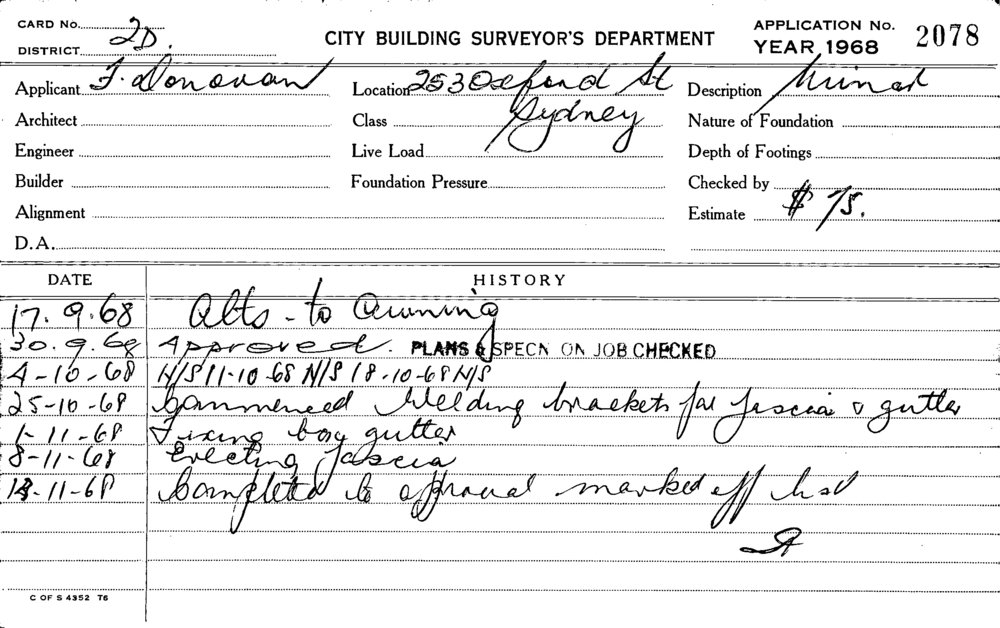 CARD No.
DISTRICT 2D.
CITY BUILDING SURVEYOR'S DEPARTMENT
APPLICATION No. 2078
YEAR 1968
Applicant F. Donovan Location 253 Oxford St Description Minor
Architect Class Sydney Nature of Foundation
Engineer Live Load Depth of Footings
Builder Foundation Pressure Checked by
Alignment Estimate $75.
D.A.
DATE HISTORY
17.9.68 Alts - to Awning
30.9.68 Approved. PLANS & SPECN ON JOB CHECKED
4-10-68 N/S 11-10-68 N/S 18-10-68 N/S
25-10-68 Commenced Welding brackets for fascia & gutter
1-11-68 Fixing box gutter
8-11-68 Erecting fascia
-11-68 Completed to approval marked off list
C OF S 4352 T6